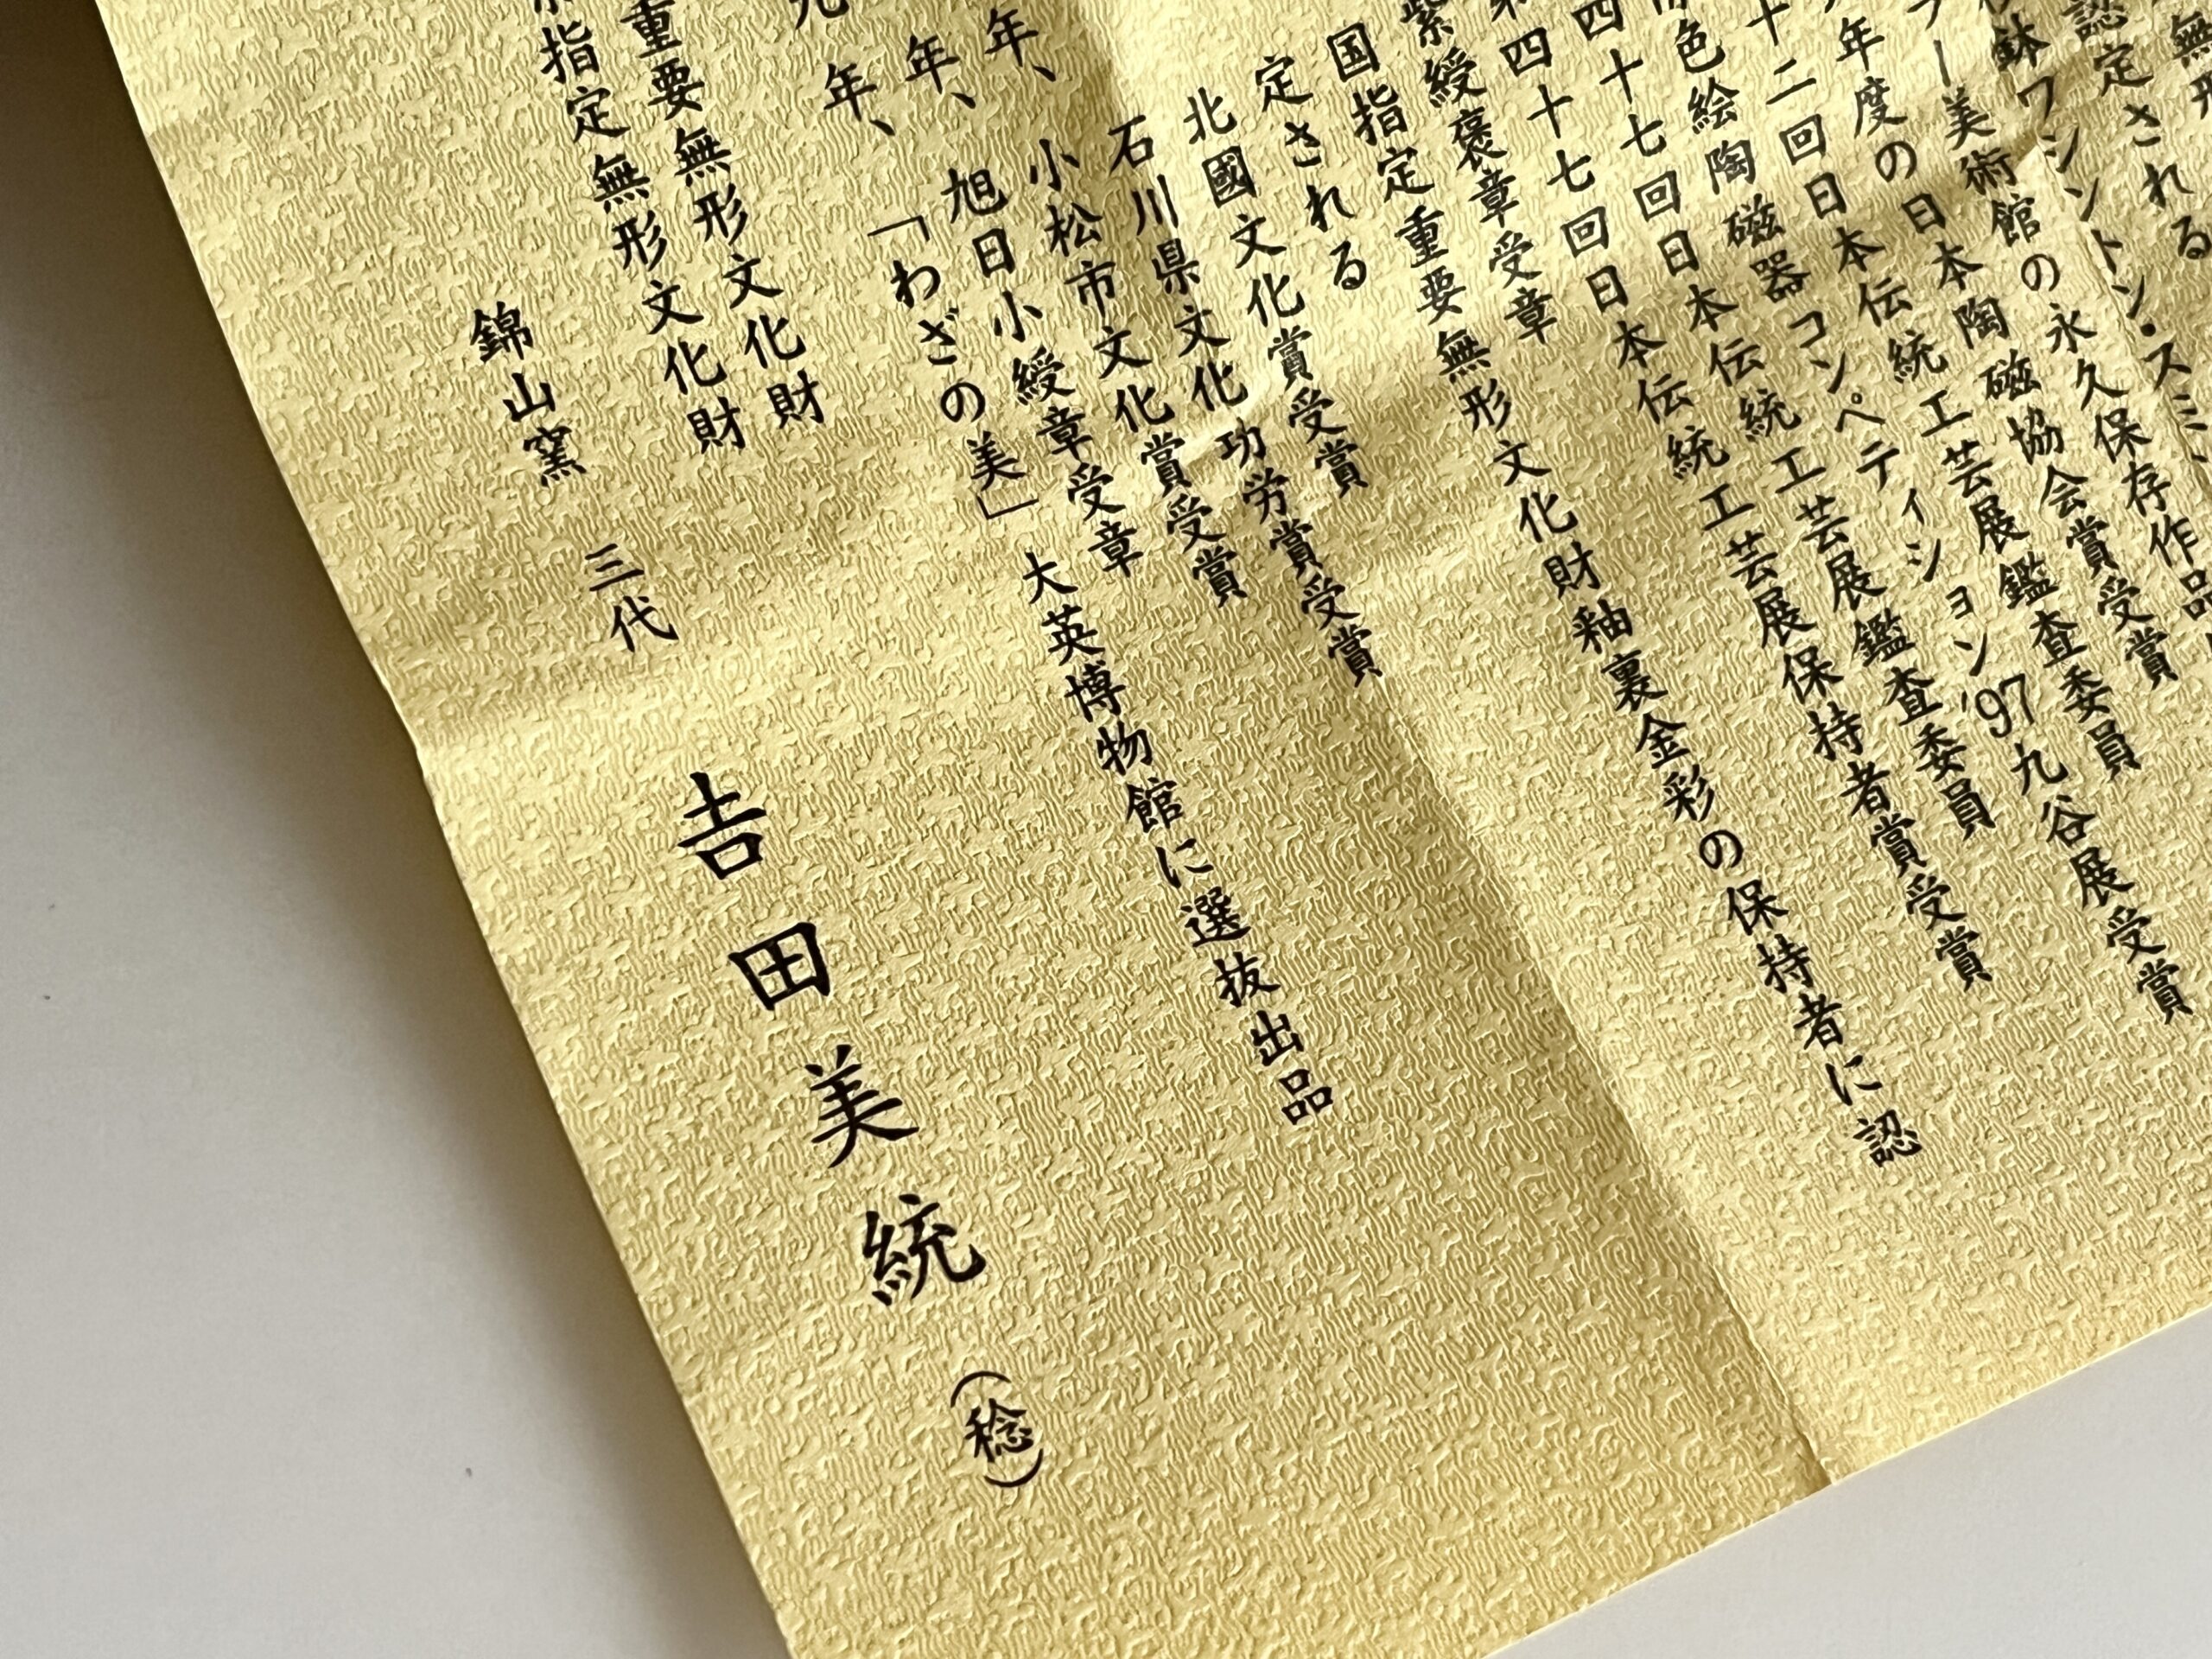 無形
認定される
鉢ワシントン・スミ
ー美術館の永久保存作品
年度の日本陶磁協会賞受賞
十二回日本伝統工芸展鑑査委員
色絵陶磁器コンペティション'97九谷展受賞
四十七回日本伝統工芸展鑑査委員
四十七回日本伝統工芸展保持者賞受賞
紫綬褒章受章
国指定重要無形文化財釉裏金彩の保持者に認
定される
北國文化賞受賞
石川県文化功労賞受賞
年、小松市文化賞受賞
年、旭日小綬章受章
年、「わざの美」大英博物館に選抜出品
重要無形文化財
指定無形文化財
錦山窯 三代 𠮷田美統(稔)